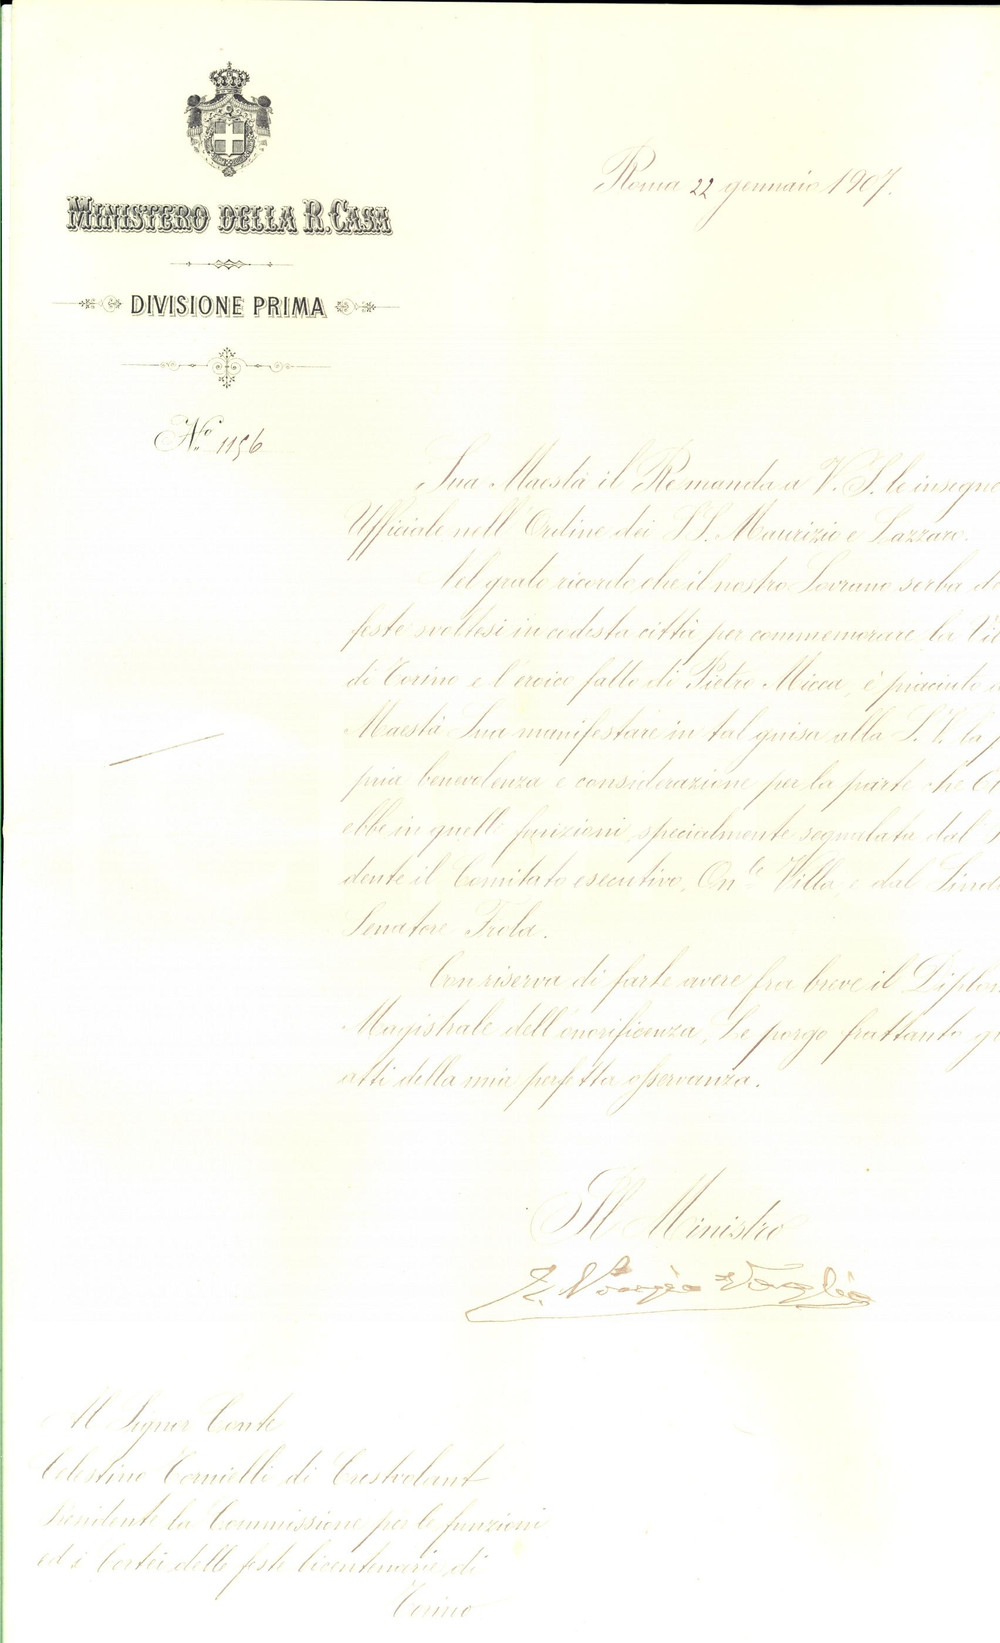 MINISTERO DELLA R. CASA
DIVISIONE PRIMA
Roma 22 gennaio 1907.
N.º 1156
Sua Maestà il Re manda a V. S. le insegne
Ufficiale nell'Ordine dei SS. Maurizio e Lazzaro.
Nel grato ricordo che il nostro Sovrano serba de
feste svoltesi in codesta città per commemorare la Vit
di Torino e l'eroico fatto di Pietro Micca, è piaciuto a
Maestà Sua manifestare in tal guisa alla S. V. la p
pria benevolenza e considerazione per la parte che E
ebbe in quelle funzioni, specialmente segnalata dal
dente il Comitato esecutivo, On.le Villa, e dal Sinda
Senatore Frola.
Con riserva di farle avere fra breve il Diplom
Magistrale dell'onorificenza, Le porgo frattanto g
atti della mia perfetta osservanza.
Il Ministro
E. Ponzio Vaglia
Al Signor Conte
Celestino Cornielli di Crestvolant
Presidente la Commissione per le funzioni
ed i Cortei delle feste bicentenarie di
Torino